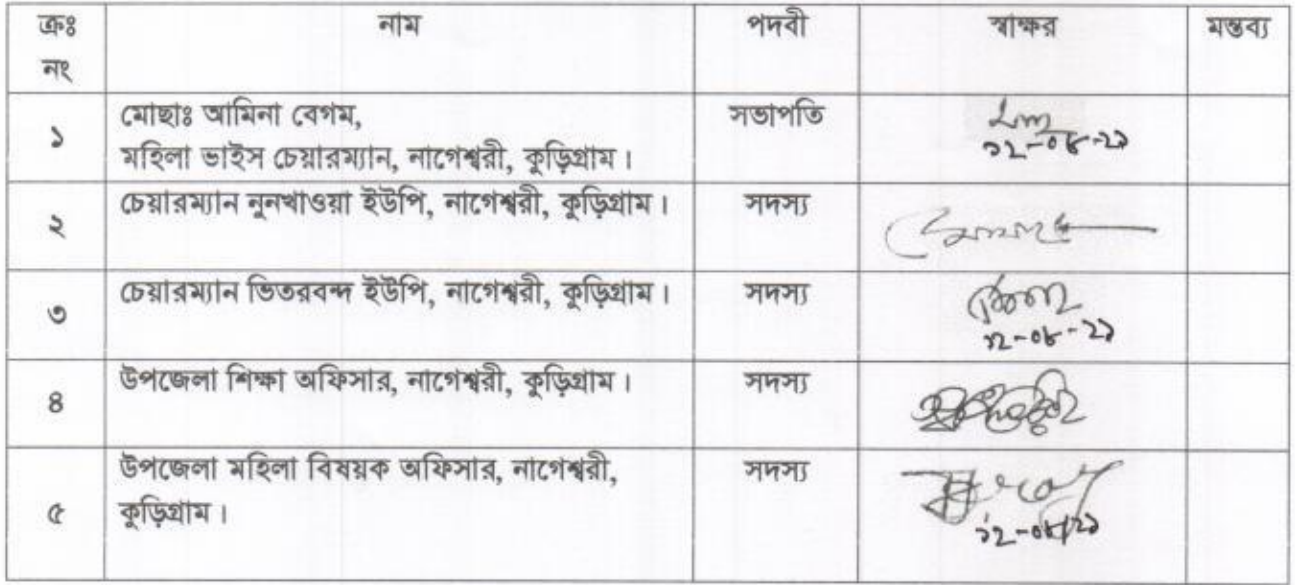 ক্রঃ নং নাম পদবী স্বাক্ষর মন্তব্য
১ মোছাঃ আমিনা বেগম, সভাপতি
মহিলা ভাইস চেয়ারম্যান, নাগেশ্বরী, কুড়িগ্রাম।
১২-০৮-২১
২ চেয়ারম্যান নুনখাওয়া ইউপি, নাগেশ্বরী, কুড়িগ্রাম। সদস্য
৩ চেয়ারম্যান ভিতরবন্দ ইউপি, নাগেশ্বরী, কুড়িগ্রাম। সদস্য
১২-০৮-২১
৪ উপজেলা শিক্ষা অফিসার, নাগেশ্বরী, কুড়িগ্রাম। সদস্য
৫ উপজেলা মহিলা বিষয়ক অফিসার, নাগেশ্বরী, সদস্য
কুড়িগ্রাম।
১২-০৮/২১